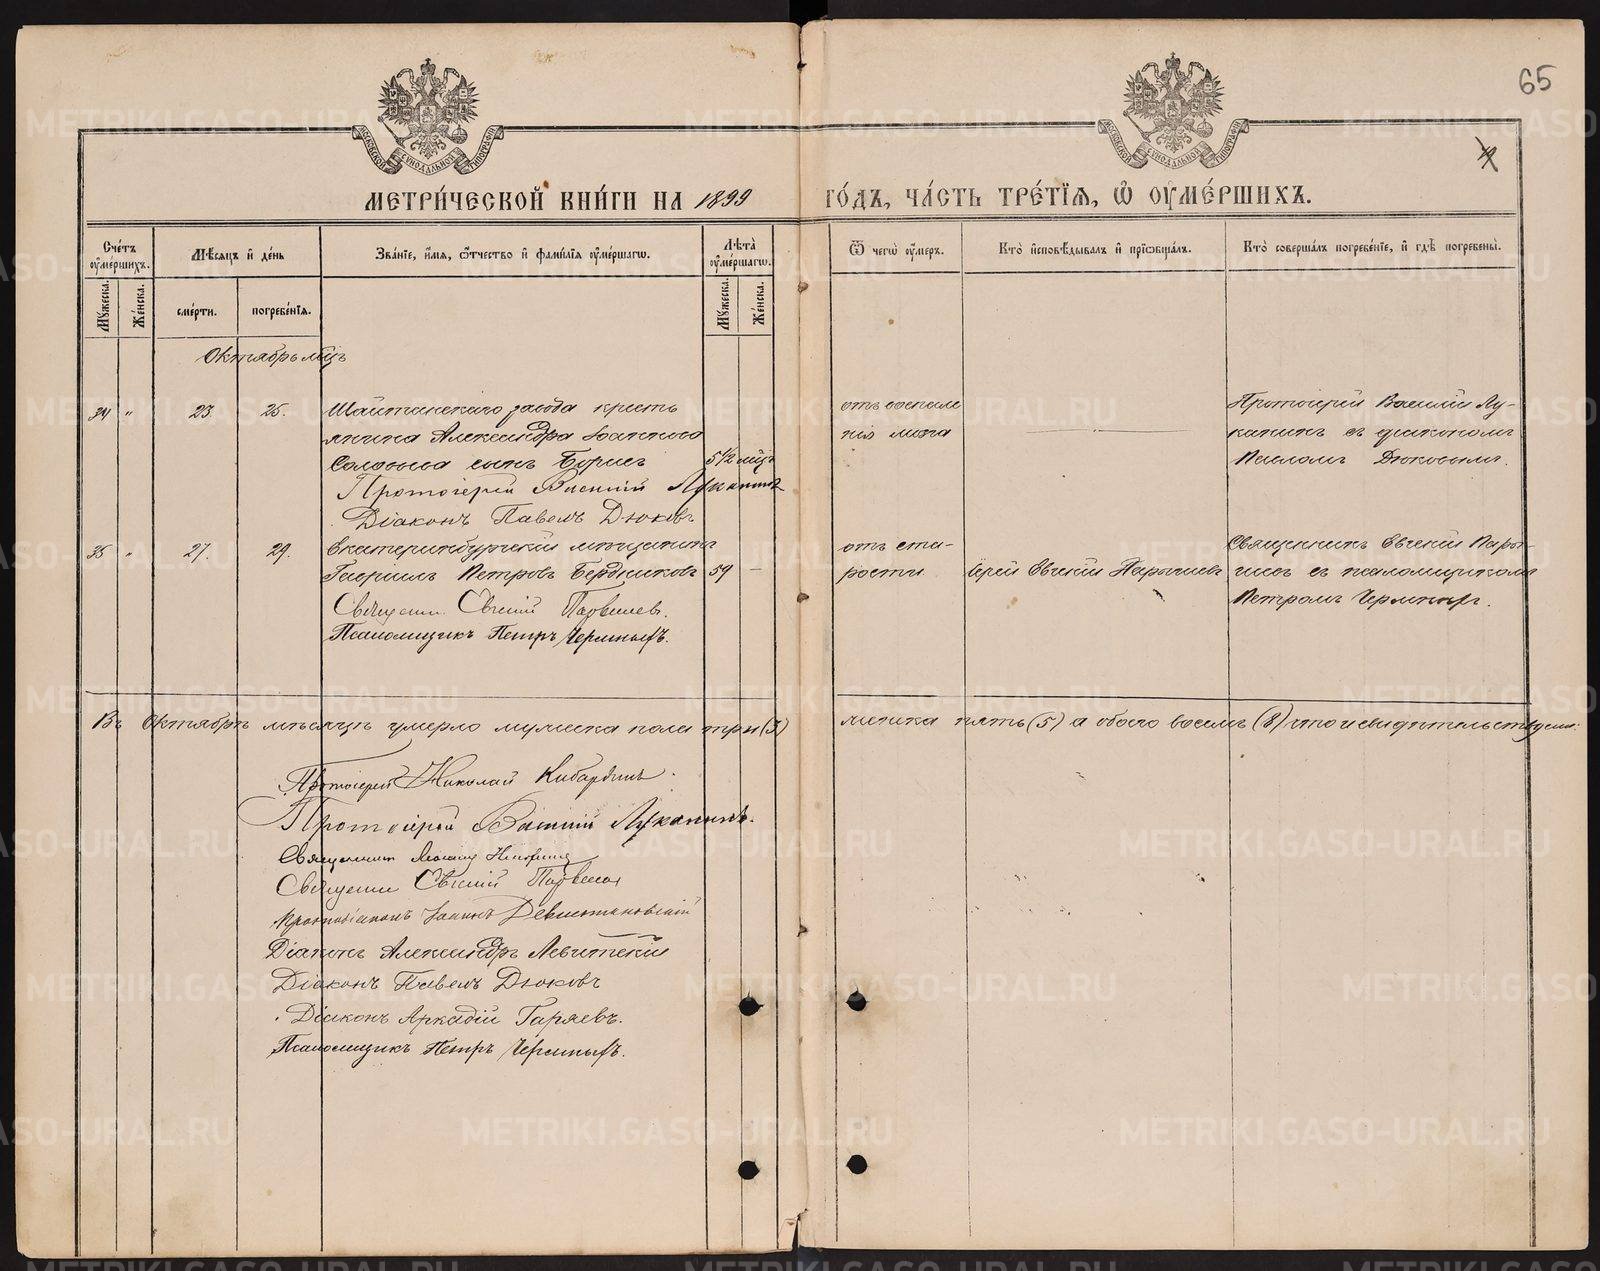 65
МОСКОВСКОЙ СУНОДАЛЬНОЙ ТИПОГРАФІИ
МОСКОВСКОЙ СУНОДАЛЬНОЙ ТИПОГРАФІИ
МЕТРИ́ЧЕСКОЙ КНИ́ГИ НА 1899 ГО́ДЪ, ЧА́СТЬ ТРЕ́ТІЯ, Ѡ ОУМЕ́РШИХЪ.
Сче́тъ оуме́ршихъ.
Мѣ́сяцъ и́ де́нь
Зва́ніе, и́мя, ѻ҆́тчество и́ фами́лія оуме́ршагѡ.
Лѣта̀ оуме́ршагѡ.
Ѿ чегѡ̀ оу́меръ.
Кто̀ и҆сповѣ́дывалъ и́ пріѡбща́лъ.
Кто̀ соверша́лъ погребе́ніе, и́ гдѣ̀ погребены̀.
Му́жеска. Же́нска.
сме́рти. погребе́нія.
Му́жеска. Же́нска.
Октябрь мѣцъ
34 " 23. 25. Шайтанскаго завода кресть
янина Александра Іоаннова
Соловьева сынъ Борисъ 5 1/2 мѣц.
Протоіерей Василій Луканинъ
Діаконъ Павелъ Дюковъ
отъ воспале
нія
Протоіерей Василій Лу-
канинъ съ діакономъ
Павломъ Дюковымъ.
35 " 27. 29. Екатеринбургскій мѣщанинъ
Гавріилъ Петровъ Бердниковъ 59 —
Священн. Евгеній
Псаломщикъ Петръ Черемныхъ.
отъ ста-
рости
Іерей Евгеній
Священникъ Евгеній
съ псаломщикомъ
Петромъ Черемныхъ.
Въ Октябрѣ мѣсяцѣ умерло мужеска пола три (3) женска пять (5) а обоего восемь (8) что и свидѣтельствуемъ:
Протоіерей Николай Кибардинъ.
Протоіерей Василій Луканинъ.
Священникъ
Священн. Евгеній
Протодіаконъ Іоаннъ
Діаконъ Александръ Левитскій
Діаконъ Павелъ Дюковъ
Діаконъ Аркадій Гаряевъ.
Псаломщикъ Петръ Черемныхъ.
METRIKI.GASO-URAL.RU